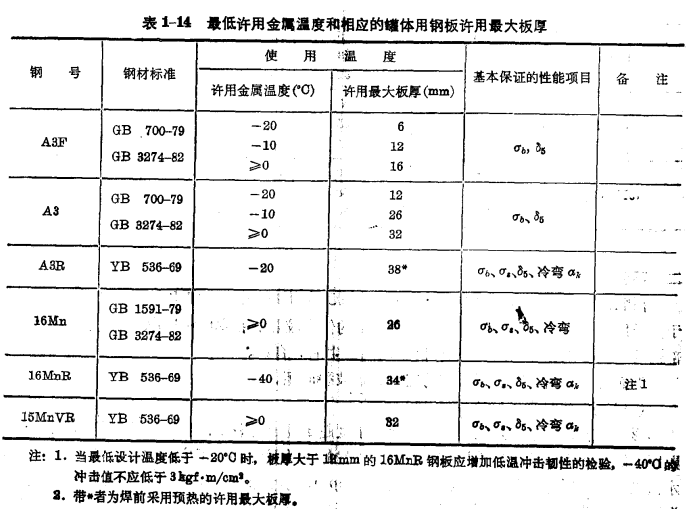 表 1-14 最低许用金属温度和相应的罐体用钢板许用最大板厚
钢 号 钢材标准 使 用 温 度 基本保证的性能项目 备 注
许用金属温度(℃) 许用最大板厚(mm)
A3F GB 700-79 GB 3274-82 σb, δ5
-20 6
-10 12
≥0 16
A3 GB 700-79 GB 3274-82 σb, δ5
-20 12
-10 26
≥0 32
A3R YB 536-69 -20 38* σb、σs、δ5、冷弯 αk
16Mn GB 1591-79 GB 3274-82 ≥0 26 σb、σs、δ5、冷弯
16MnR YB 536-69 -40 34* σb、σs、δ5、冷弯 αk 注1
15MnVR YB 536-69 ≥0 32 σb、σs、δ5、冷弯 αk
注: 1. 当最低设计温度低于 -20℃ 时, 板厚大于 mm 的 16MnR 钢板应增加低温冲击韧性的检验, -40℃ 的
冲击值不应低于 3kgf·m/cm².
2. 带*者为焊前采用预热的许用最大板厚。